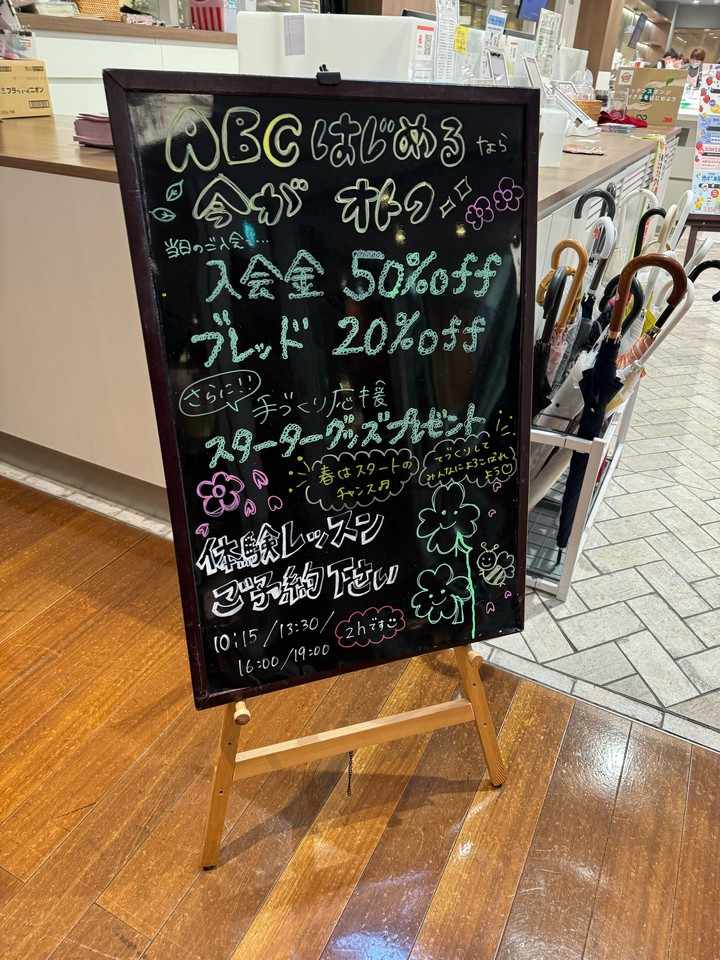 ABCはじめるなら
今がオトク
当日のご入会で...
入会金 50%off
ブレッド 20%off
さらに!!
手づくり応援
スターターグッズプレゼント
春はスタートの
チャンス
てづくりして
みんなによろこばれ
よう
体験レッスン
ご予約下さい
10:15/13:30/
16:00/19:00
2hです